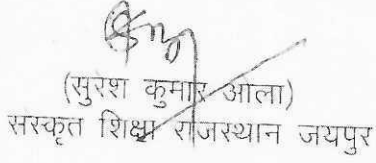 (सुरेश कुमार ओला)
संस्कृत शिक्षा राजस्थान जयपुर